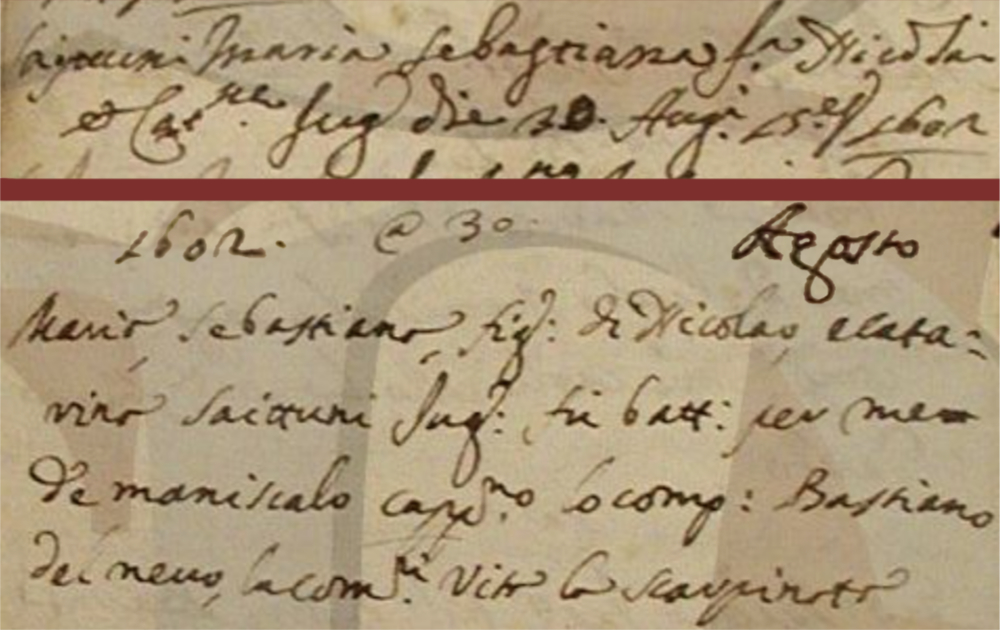 Saittuni Maria Sebastiana f.ª Nicolai
et Cat.ᵃ Jug die 30. Aug.ⁱ 15.e Ind 1602
1602. @ 30. Agosto
Maria Sebastiana, fig: di Nicolao, e Cata=
rina Saittuni Jug: fu batt: per me
de maniscalo capp.no lo comp: Bastiano
del nevo, la com.ri Vita la Scarpinata